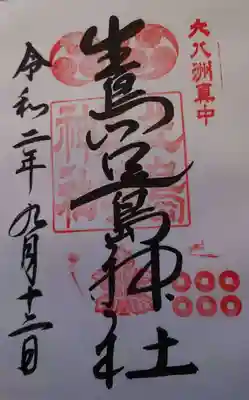 大八洲眞中
生島足島神社
令和二年九月十二日